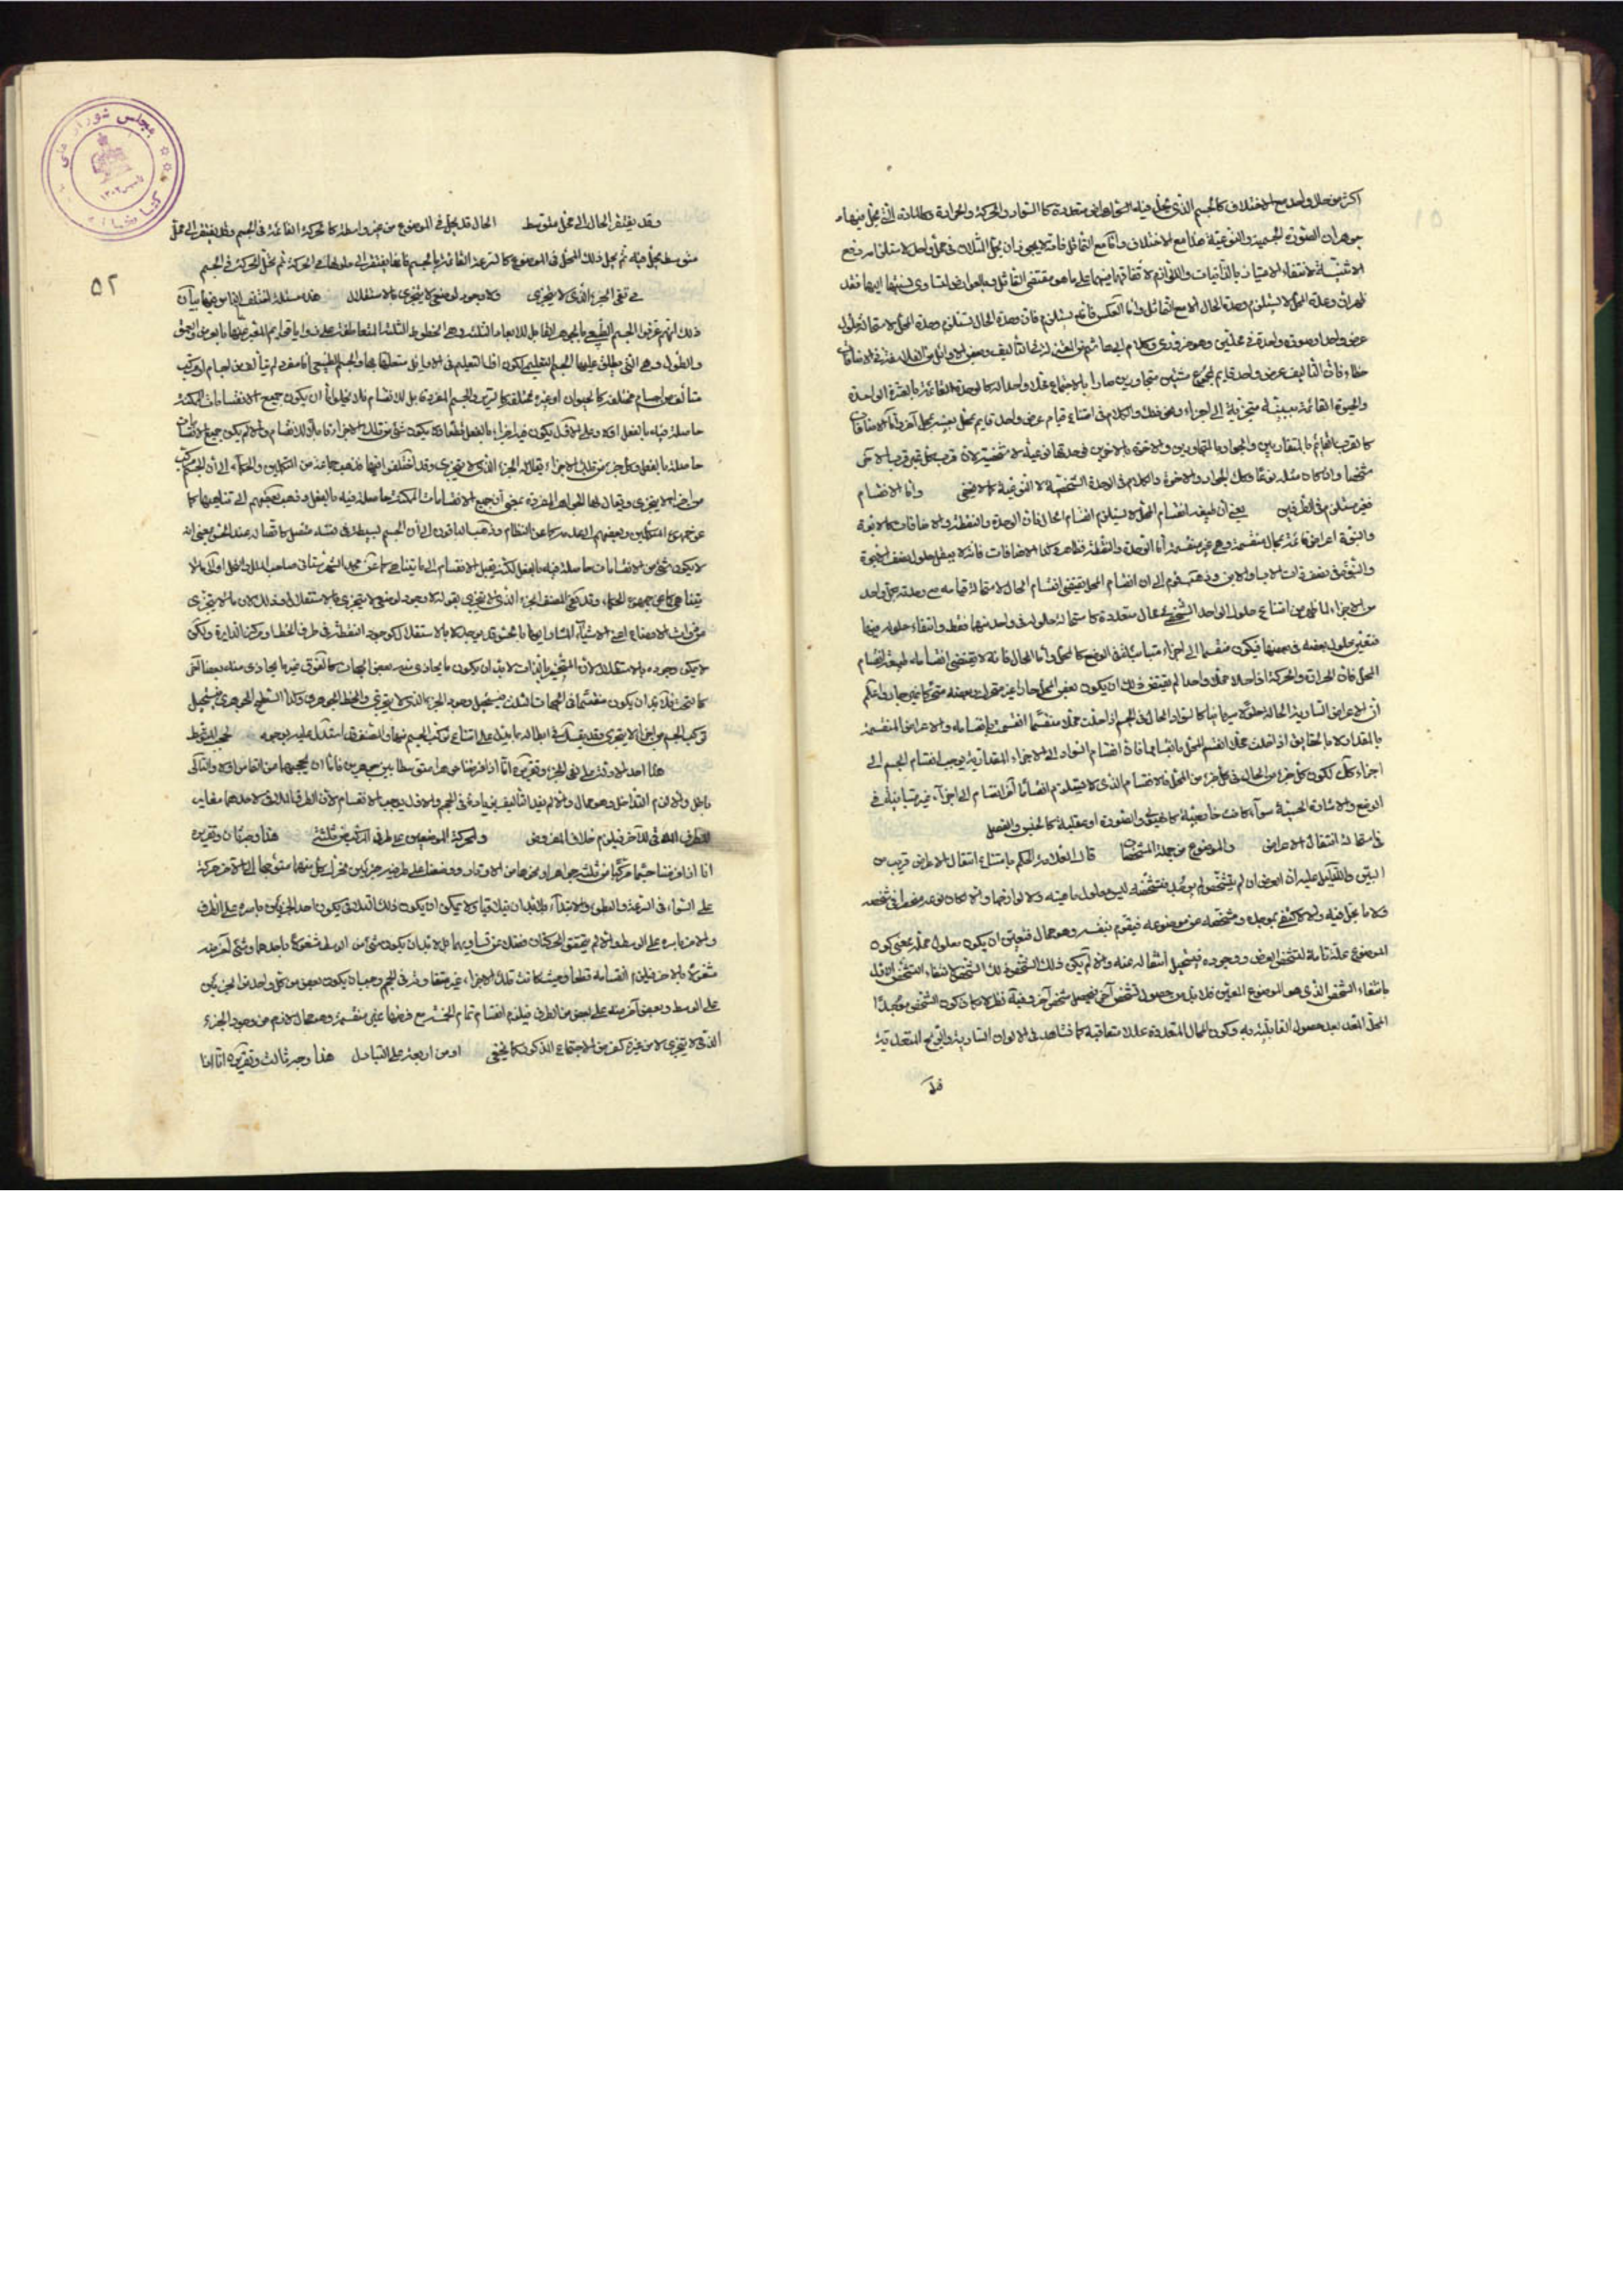 اكثر من حال واحد مع الاختلاف كالجسم الذى يحل فيه اعراض متعددة كالسواد والحركة والحرارة وكالمادة التى يحل فيها
جوهران الصورة الجسمية والنوعية هذا مع الاختلاف واما مع التماثل فانه لا يجوز ان يحل المثلان فى محل واحد لاستلزامه رفع
الاثنينية لانتفاء الامتياز بالذاتيات واللوازم لاتفاقهما فيهما على ما هو مقتضى التماثل وبالعوارض لتساوى نسبتها اليهما فقد
ظهر ان وحدة المحل لا يستلزم وحدة الحال الا مع التماثل واما العكس فانه يستلزم فان وحدة الحال تستلزم وحدة المحل لاستحالة حلول
عرض واحد او صورة واحدة فى محلين وهو ضرورى وكلام ابى هاشم من المعتزلة فى التأليف وبعض الاوائل من الفلاسفة فى الاضافات
خطاء فان التأليف عرض واحد قايم بمجموع شيئين متجاورين صارا بالاجتماع محلا واحدا له كالوحدة القائمة بالعشرة الواحدة
والحيوة القائمة ببنية متجزية الى اجزاء وهى فقط والكلام فى امتناع قيام عرض واحد قايم بمحل بعينه بمحل آخر واما الاضافات
كالقرب القائم بالمتقاربين والجوار بالمتجاورين والاخوة بالاخوين فوحدتها نوعية لا شخصية لان قرب كل غير قرب الآخر
شخصا وان كان مثله نوعا وكذا الجوار والاخوة والكلام فى الوحدة الشخصية لا النوعية كما لا يخفى واما الانقسام
فغير مستلزم فى الطرفين يعنى ان طبيعة انقسام المحل لا يستلزم انقسام الحال فان الوحدة والنقطة والاضافات كالابوة
والبنوة اعراض قائمة بمحال منقسمة وهى غير منقسمة اما الوحدة والنقطة فظاهر وكذا الاضافات فانه لا يعقل حلول نصف الابوة
والبنوة فى نصف ذات الاب او الابن وذهب قوم الى ان انقسام المحل يقتضى انقسام الحال لاستحالة قيامه مع وحدته بكل واحد
من الاجزاء لما ظهر من امتناع حلول الواحد الشخصى بمحال متعددة كاستحالة حلوله فى واحد منها فقط وانتفاء حلوله فيها
فتعين حلول بعضه فى بعضها فيكون منقسما الى اجزاء متباينة فى الوضع كالمحل واما الحال فانه لا يقتضى انقسامه طبيعة انقسام
المحل فان الحرارة والحركة اذا حلا محلا واحدا لم يقتض ذلك ان يكون بعض المحل حارا غير متحرك وبعضه متحركا غير حار واعلم
ان الاعراض السارية الحالة حلولا سريانيا كالسواد الحال فى الجسم اذا حلت محلا منقسما انقسمت بانقسامه والاعراض المنقسمة
بالمقدار لا بالحقايق اذا حلت محلا انقسم المحل بانقسامها فان انقسام السواد الى الاجزاء المقدارية يوجب انقسام الجسم الى
اجزاء كذلك لكون كل جزء من الحال فى كل جزء من المحل فالانقسام الذى لا يستلزم انقساما آخر انقسام الى اجزاء غير متباينة فى
الوضع والاشارة الحسية سواء كانت خارجية كالهيولى والصورة او عقلية كالجنس والفصل
فى استحالة انتقال الاعراض والموضوع من جملة المشخصات قال العلامة الحكم بامتناع انتقال الاعراض قريب من
البين والدليل عليه ان العرض ان لم يتشخص لم يوجد فتشخصه ليس معلول ماهيته ولا لوازمها والا لكان نوعه منحصرا فى شخصه
ولا ما يحل فيه والا لاكتفى بموجده ومشخصه عن موضوعه فيقوم بنفسه وهو محال فتعين ان يكون معلول محله بمعنى كون
الموضوع علة تامة لتشخص العرض ووجوده فيستحيل انتقاله عنه والا لم يكن ذلك الشخص ذلك الشخص لانتفاء التشخص الاول
بانتفاء الشخص الذى هو الموضوع المعين فلا بد من حصول تشخص آخر فيحصل شخص آخر وفيه نظر لاجواز كون الشخص موجدا
المحل المعد بعد حصول القابلية به وكون المحال المتعددة عللا متعاقبة كما نشاهد فى الالوان السارية والروايح المتعدية
قد
وقد يفتقر الحال الى محل متوسط الحال قد يحل فى الموضوع من غير واسطة كالحركة القائمة فى الجسم وقد يفتقر الى محل
متوسط يحل فيه ثم يحل ذلك المحل فى الموضوع كالسرعة القائمة بالجسم فانها يفتقر الى حلولها فى الحركة ثم تحل الحركة فى الجسم
فى نفى الجزء الذى لا يتجزى ولا وجود لوضعى لا يتجزى بالاستقلال هذه مسئلة اختلف الناس فيها بيان
ذلك انهم عرفوا الجسم الطبيعى بالجوهر القابل للابعاد الثلثة وهى الخطوط الثلثة المتقاطعة على زوايا قوايم المعبر عنها بالعرض والعمق
والطول وهى التى يطلق عليها الجسم التعليمى لكون افراد التعليم فى الاوايل متعلقا بها والجسم الطبيعى اما مفرد لم يتألف من اجسام او مركب
متألف من اجسام مختلفة كالحيوان او غير مختلفة كالسرير والجسم المفرد قابل للانقسام فلا يخلو اما ان يكون جميع الانقسامات الممكنة
حاصلة فيه بالفعل او لا وعلى الاول يكون فيه اجزاء بالفعل قطعا ولا يكون شئ من تلك الاجزاء قابلا للانقسام والا لم يكن جميع الانقسامات
حاصلة بالفعل وكل جزء من تلك الاجزاء يقال له الجزء الذى لا يتجزى وقد اختلفوا فيها فذهب جماعة من المتكلمين والحكماء الى ان الجسم مركب
من اجزاء لا يتجزى ويقال لها الجواهر الفردة بمعنى ان جميع الانقسامات الممكنة حاصلة فيه بالفعل وذهب بعضهم الى تناهيها كما
عن جمهور المتكلمين وبعضهم الى عدمه كما عن النظام وذهب الباقون الى ان الجسم بسيط فى نفسه متصل كما انه عند الحس بمعنى انه
لا يكون شئ من الانقسامات حاصلة فيه بالفعل لكنه يقبل الانقسام الى ما يتناهى كما عن محمد الشهرستانى صاحب الملل والنحل او الى ما لا
يتناهى كما عن جمهور الحكماء وقد نفى المصنف الجزء الذى لا يتجزى بقوله لا وجود لوضعى لا يتجزى بالاستقلال اذ ذلك لان ما لا يتجزى
من ذوات الاوضاع اعنى الاشياء المشار اليها بالحس قد يوجد لا بالاستقلال كوجود النقطة فى طرف الخط او مركز الدايرة ولكن
لا يمكن وجوده بالاستقلال لان المتحيز بالذات لا بد ان يكون ما يحاذى منه بعض الجهات كالفوق غير ما يحاذى منه بعضا آخر
كالتحت فلا بد ان يكون منقسما فى الجهات الثلث فيستحيل وجود الجزء الذى لا يتجزى والخط الجوهرى وكذا السطح الجوهرى فيستحيل
تركب الجسم من اجزاء لا يتجزى وقد يقال فى ابطاله ما يدل على امتناع تركب الجسم منها والمصنف استدل عليه بوجوه لحجب المتوسط
هذا احد الادلة على نفى الجزء وتقريره انا اذا فرضنا جوهرا متوسطا بين جوهرين فاما ان يحجبهما من التماس او لا والثانى
باطل والا لزم التداخل وهو محال والا لم يفد التأليف زيادة فى الحجم والاول يوجب الانقسام لان الطرف الملاقى لاحدهما مغاير
للطرف الملاقى للآخر فيلزم خلاف المفروض ولحركة الموضعين على طرفى المركب من ثلثة هذا وجه ثان وتقريره
انا اذا فرضنا جسما مركبا من ثلثة جواهر او نحوها من الاوتار ووضعنا على طرفيه جزءين تحرك كل منهما متوجها الى الآخر حركة
على السواء فى السرعة والبطؤ والابتداء فلا بد ان يتلاقيا ولا يمكن ان يكون ذلك التلاقى بكون احد الجزءين باسره على الطرف
والآخر باسره على الوسط والا لم يتحقق الحركتان فضلا عن تساويهما بل لا بد ان يكون شئ من الوسط مشغولا باحدهما وشئ آخر منه
مشغولا بالآخر فيلزم انقسامه قطعا وحيث كانت تلك الاجزاء غير متفاوتة فى الحجم وجب ان يكون بعض من كل واحد من الجزءين
على الوسط وبعض آخر منه على بعض من الطرف فيلزم انقسام تمام الخمسة مع فرضها غير منقسمة وهو محال لازم من وجود الجزء
الذى لا يتجزى لا من غيره كغرض الاجتماع المذكور كما لا يخفى او من اربعة على التبادل هذا وجه ثالث وتقريره انا اذا
۵۲